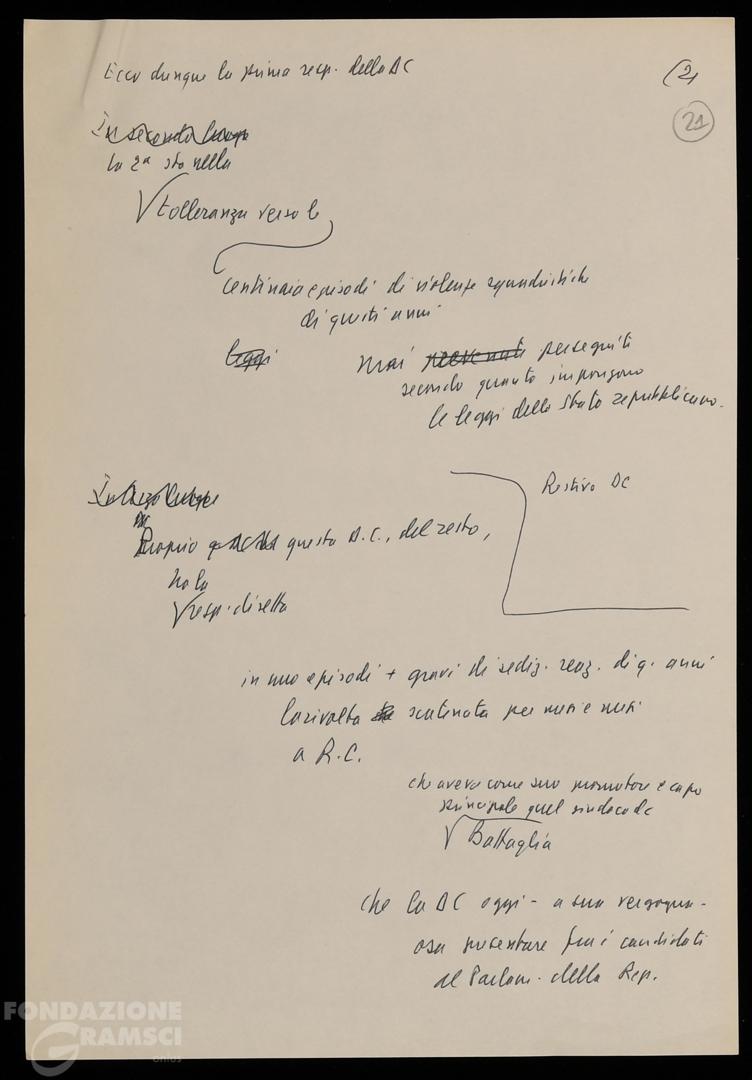 Ecco dunque la prima resp. della DC
(2
21
In secondo luogo
la 2ª sta nella
tolleranza verso le
centinaia episodi di violenze squadristiche
di questi anni
leggi
mai perseguiti
secondo quanto impongono
le leggi dello Stato repubblicano.
Restivo DC
In terzo luogo
Proprio questa D.C., del resto,
ha la
resp. diretta
in uno episodi + gravi di sediz. reaz. di q. anni
la rivolta scatenata per mesi e mesi
a R.C.
che aveva come suo promotore e capo
principale quel sindaco dc
Battaglia
che la DC oggi - a sua vergogna -
osa presentare fra i candidati
al Parlam. della Rep.
FONDAZIONE
GRAMSCI
onlus